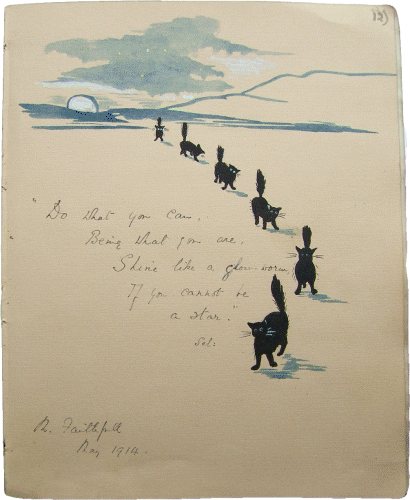 12)
"Do what you can,
Being what you are,
Shine like a glow-worm,
If you cannot be
a star."
Sel:
R. Faithfull
May 1914.